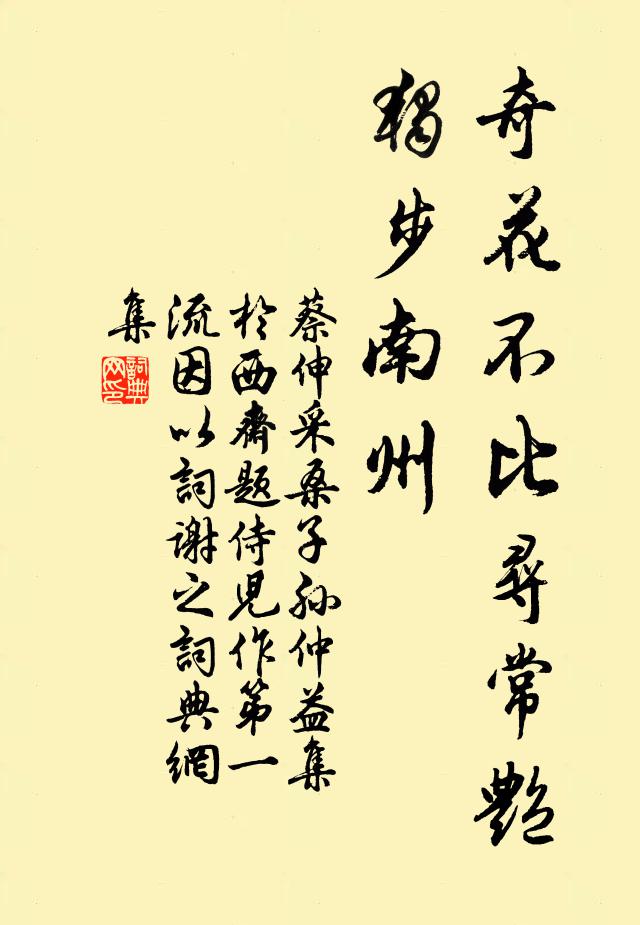 奇花不比尋常艷
獨步南州
蔡伸采桑子孙仲益集
於西齋題侍兒作第一
流因以詞謝之詞典網
集
詞典
网印